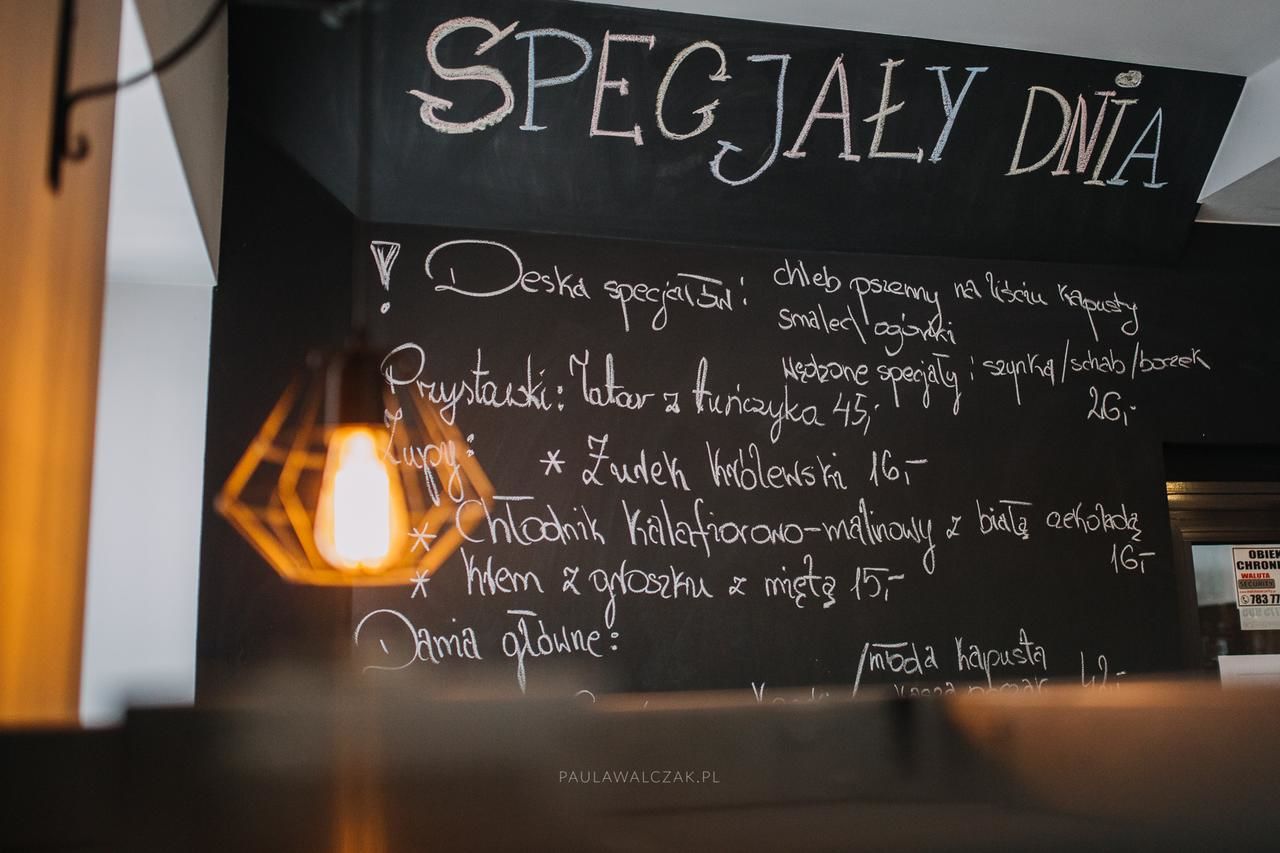 SPECJAŁY DNIA
! Deska specjałów: chleb pszenny na liściu kapusty
smalec\ ogórki
wędzone specjały: szynka/schab/boczek
26,-
Przystawki: Tatar z tuńczyka 45,-
Zupy: * Żurek królewski 16,-
* Chłodnik kalafiorowo-malinowy z białą czekoladą
16,-
* krem z groszku z miętą 15,-
Dania główne:
/młoda kapusta
42,-
OBIEK
CHRONI
WALUTA
SECURITY
783 77
PAULAWALCZAK.PL